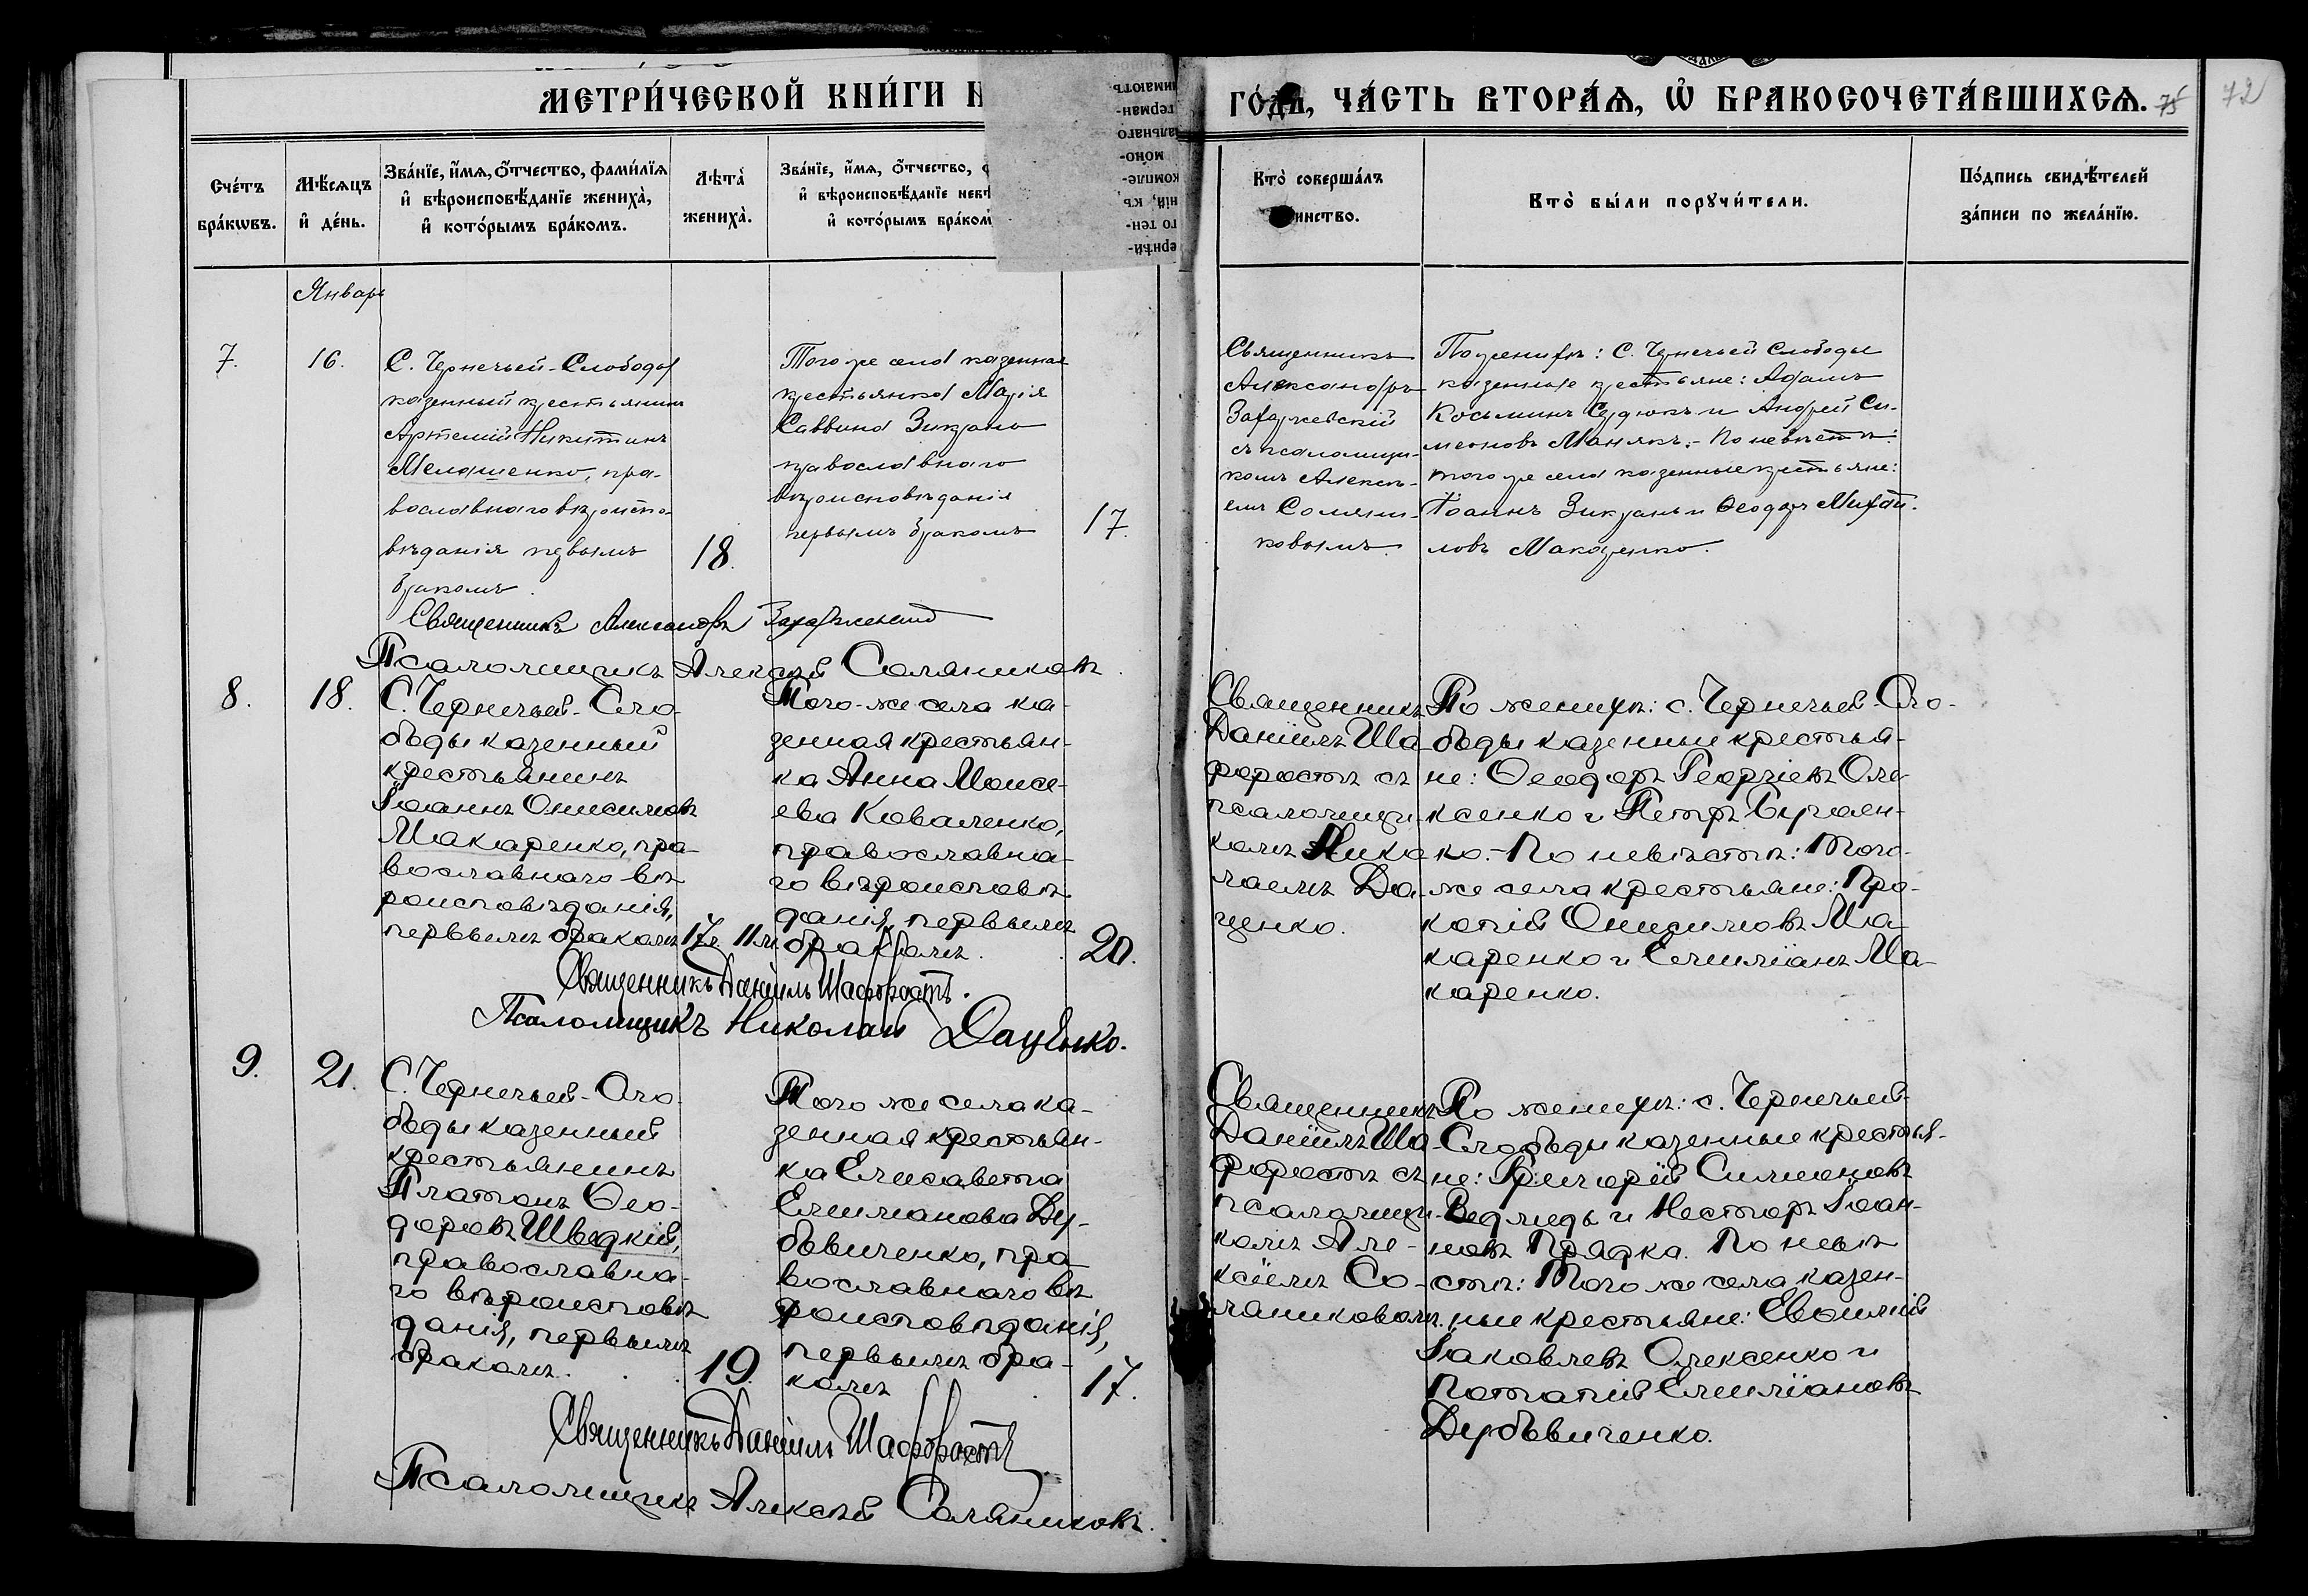 МЕТРИ́ЧЕСКОЙ КНИ́ГИ Н
ГО́ДЪ, ЧА́СТЬ ВТОРА́Ѧ, Ѡ҆ БРАКОСОЧЕТА́ВШИХСѦ. 75
72
Сче́тъ бра́кѡвъ.
Мѣ́сѧцъ и҆ де́нь.
Зва́нїе, и҆́мѧ, ѻ҆́тчество, фами́лїѧ
и҆ вѣроисповѣ́данїе жениха̀,
и҆ кото́рымъ бра́комъ.
Лѣта̀ жениха̀.
Зва́нїе, и҆́мѧ, ѻ҆́тчество,
и҆ вѣроисповѣ́данїе невѣ
и҆ кото́рымъ бра́ком
Кто̀ соверша́лъ
инство.
Кто̀ бы́ли порꙋчи́тели.
По́дпись свидѣ́телей
за́писи по жела́нїю.
Январь
7.
16.
С. Чернечьей-Слободы
казенный крестьянинъ
Артемій Никитинъ
Мелашенко, пра-
вославнаго вѣроиспо-
вѣданія первымъ
бракомъ.
18.
Того же села казенная
крестьянка Марія
Саввина Зикрань
православнаго
вѣроисповѣданія
первымъ бракомъ
17.
Священникъ
Александръ
Захаржевскій
съ псаломщи-
комъ Алексѣ-
емъ Соляни-
ковымъ.
По женихѣ: С. Чернечьей Слободы
казенные крестьяне: Адамъ
Косьминъ Сердюкъ и Андрей Си-
меоновъ Манякъ.- По невѣстѣ:
того же села казенные крестьяне:
Іоаннъ Зикрань и Ѳеодоръ Михай-
ловъ Макаренко.
Священникъ Александръ Захаржевскій
Псаломщикъ Алексѣй Соляниковъ.
8.
18.
С. Чернечьей-Сло-
боды казенный
крестьянинъ
Іоаннъ Онисимовъ
Макаренко, пра-
вославнаго вѣ-
роисповѣданія,
первымъ бракомъ
17г. 11м.
Того-же села ка-
зенная крестьян-
ка Анна Моисе-
ева Коваленко,
православна-
го вѣроисповѣ-
данія, первымъ
бракомъ.
20.
Священникъ
Даніилъ Ша-
форостъ съ
псаломщи-
комъ Нико-
лаемъ Да-
ценко.
По женихѣ: с. Чернечьей-Сло-
боды казенные крестья-
не: Ѳеодоръ Георгіевъ Оле-
ксенко и Петръ Бугаен-
ко.- По невѣстѣ: Того-
же села крестьяне: Про-
копій Онисимовъ Ма-
каренко и Емиліанъ Ма-
каренко.
Священникъ Даніилъ Шафоростъ.
Псаломщикъ Николай Даценко.
9.
21.
С. Чернечьей-Сло-
боды казенный
крестьянинъ
Платонъ Ѳео-
доровъ Шведкій,
православна-
го вѣроисповѣ-
данія, первымъ
бракомъ.
19.
Того же села ка-
зенная крестьян-
ка Елисавета
Емиліанова Ду-
бовиченко, пра-
вославнаго вѣ-
роисповѣданія,
первымъ бра-
комъ
17.
Священникъ
Даніилъ Ша-
форостъ съ
псаломщи-
комъ Але-
ксіемъ Со-
ляниковымъ.
По женихѣ: с. Чернечьей-
Слободы казенные крестья-
не: Григорій Симеоновъ
Ведмедь и Несторъ Іоан-
новъ Прядка. По невѣ-
стѣ: Того же села казен-
ные крестьяне: Евѳимій
Іаковлевъ Олексенко и
Потапій Емиліановъ
Дубовиченко.
Священникъ Даніилъ Шафоростъ
Псаломщикъ Алексѣй Соляниковъ.